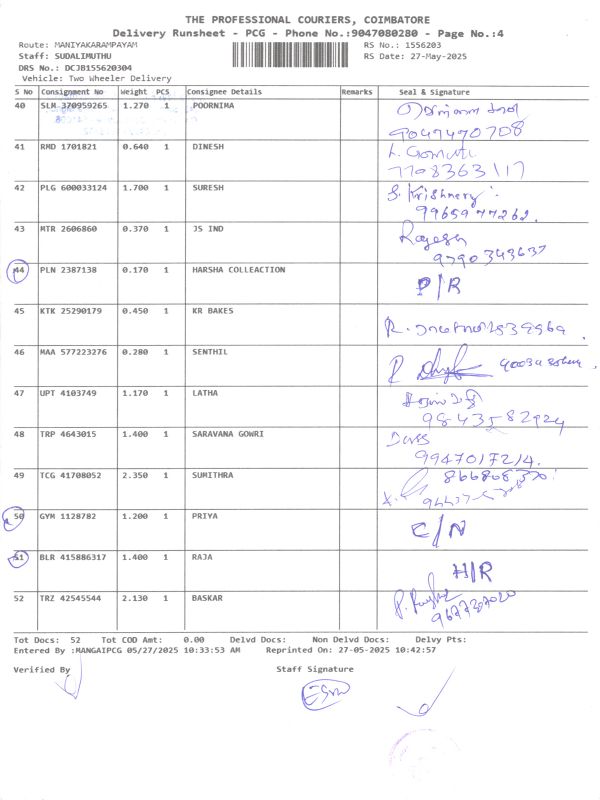 THE PROFESSIONAL COURIERS, COIMBATORE
Delivery Runsheet - PCG - Phone No.:9047080280 - Page No.:4
Route: MANIYAKARAMPAYAM RS No.: 1556203
Staff: SUDALIMUTHU RS Date: 27-May-2025
DRS No.: DCJB155620304
Vehicle: Two Wheeler Delivery
S No Consignment No Weight PCS Consignee Details Remarks Seal & Signature
40 SLM 370959265 1.270 1 POORNIMA
9047470708
41 RMD 1701821 0.640 1 DINESH L. Gomati
7708363117
42 PLG 600033124 1.700 1 SURESH
9965977262.
43 MTR 2606860 0.370 1 JS IND Rajesh
9790343637
44 PLN 2387138 0.170 1 HARSHA COLLEACTION P/R
45 KTK 25290179 0.450 1 KR BAKES
46 MAA 577223276 0.280 1 SENTHIL
47 UPT 4103749 1.170 1 LATHA
9843582924
48 TRP 4643015 1.400 1 SARAVANA GOWRI
9947017214.
49 TCG 41708052 2.350 1 SUMITHRA
50 GYM 1128782 1.200 1 PRIYA C/N
51 BLR 415886317 1.400 1 RAJA H/R
52 TRZ 42545544 2.130 1 BASKAR
Tot Docs: 52 Tot COD Amt: 0.00 Delvd Docs: Non Delvd Docs: Delvy Pts:
Entered By :MANGAIPCG 05/27/2025 10:33:53 AM Reprinted On: 27-05-2025 10:42:57
Verified By Staff Signature